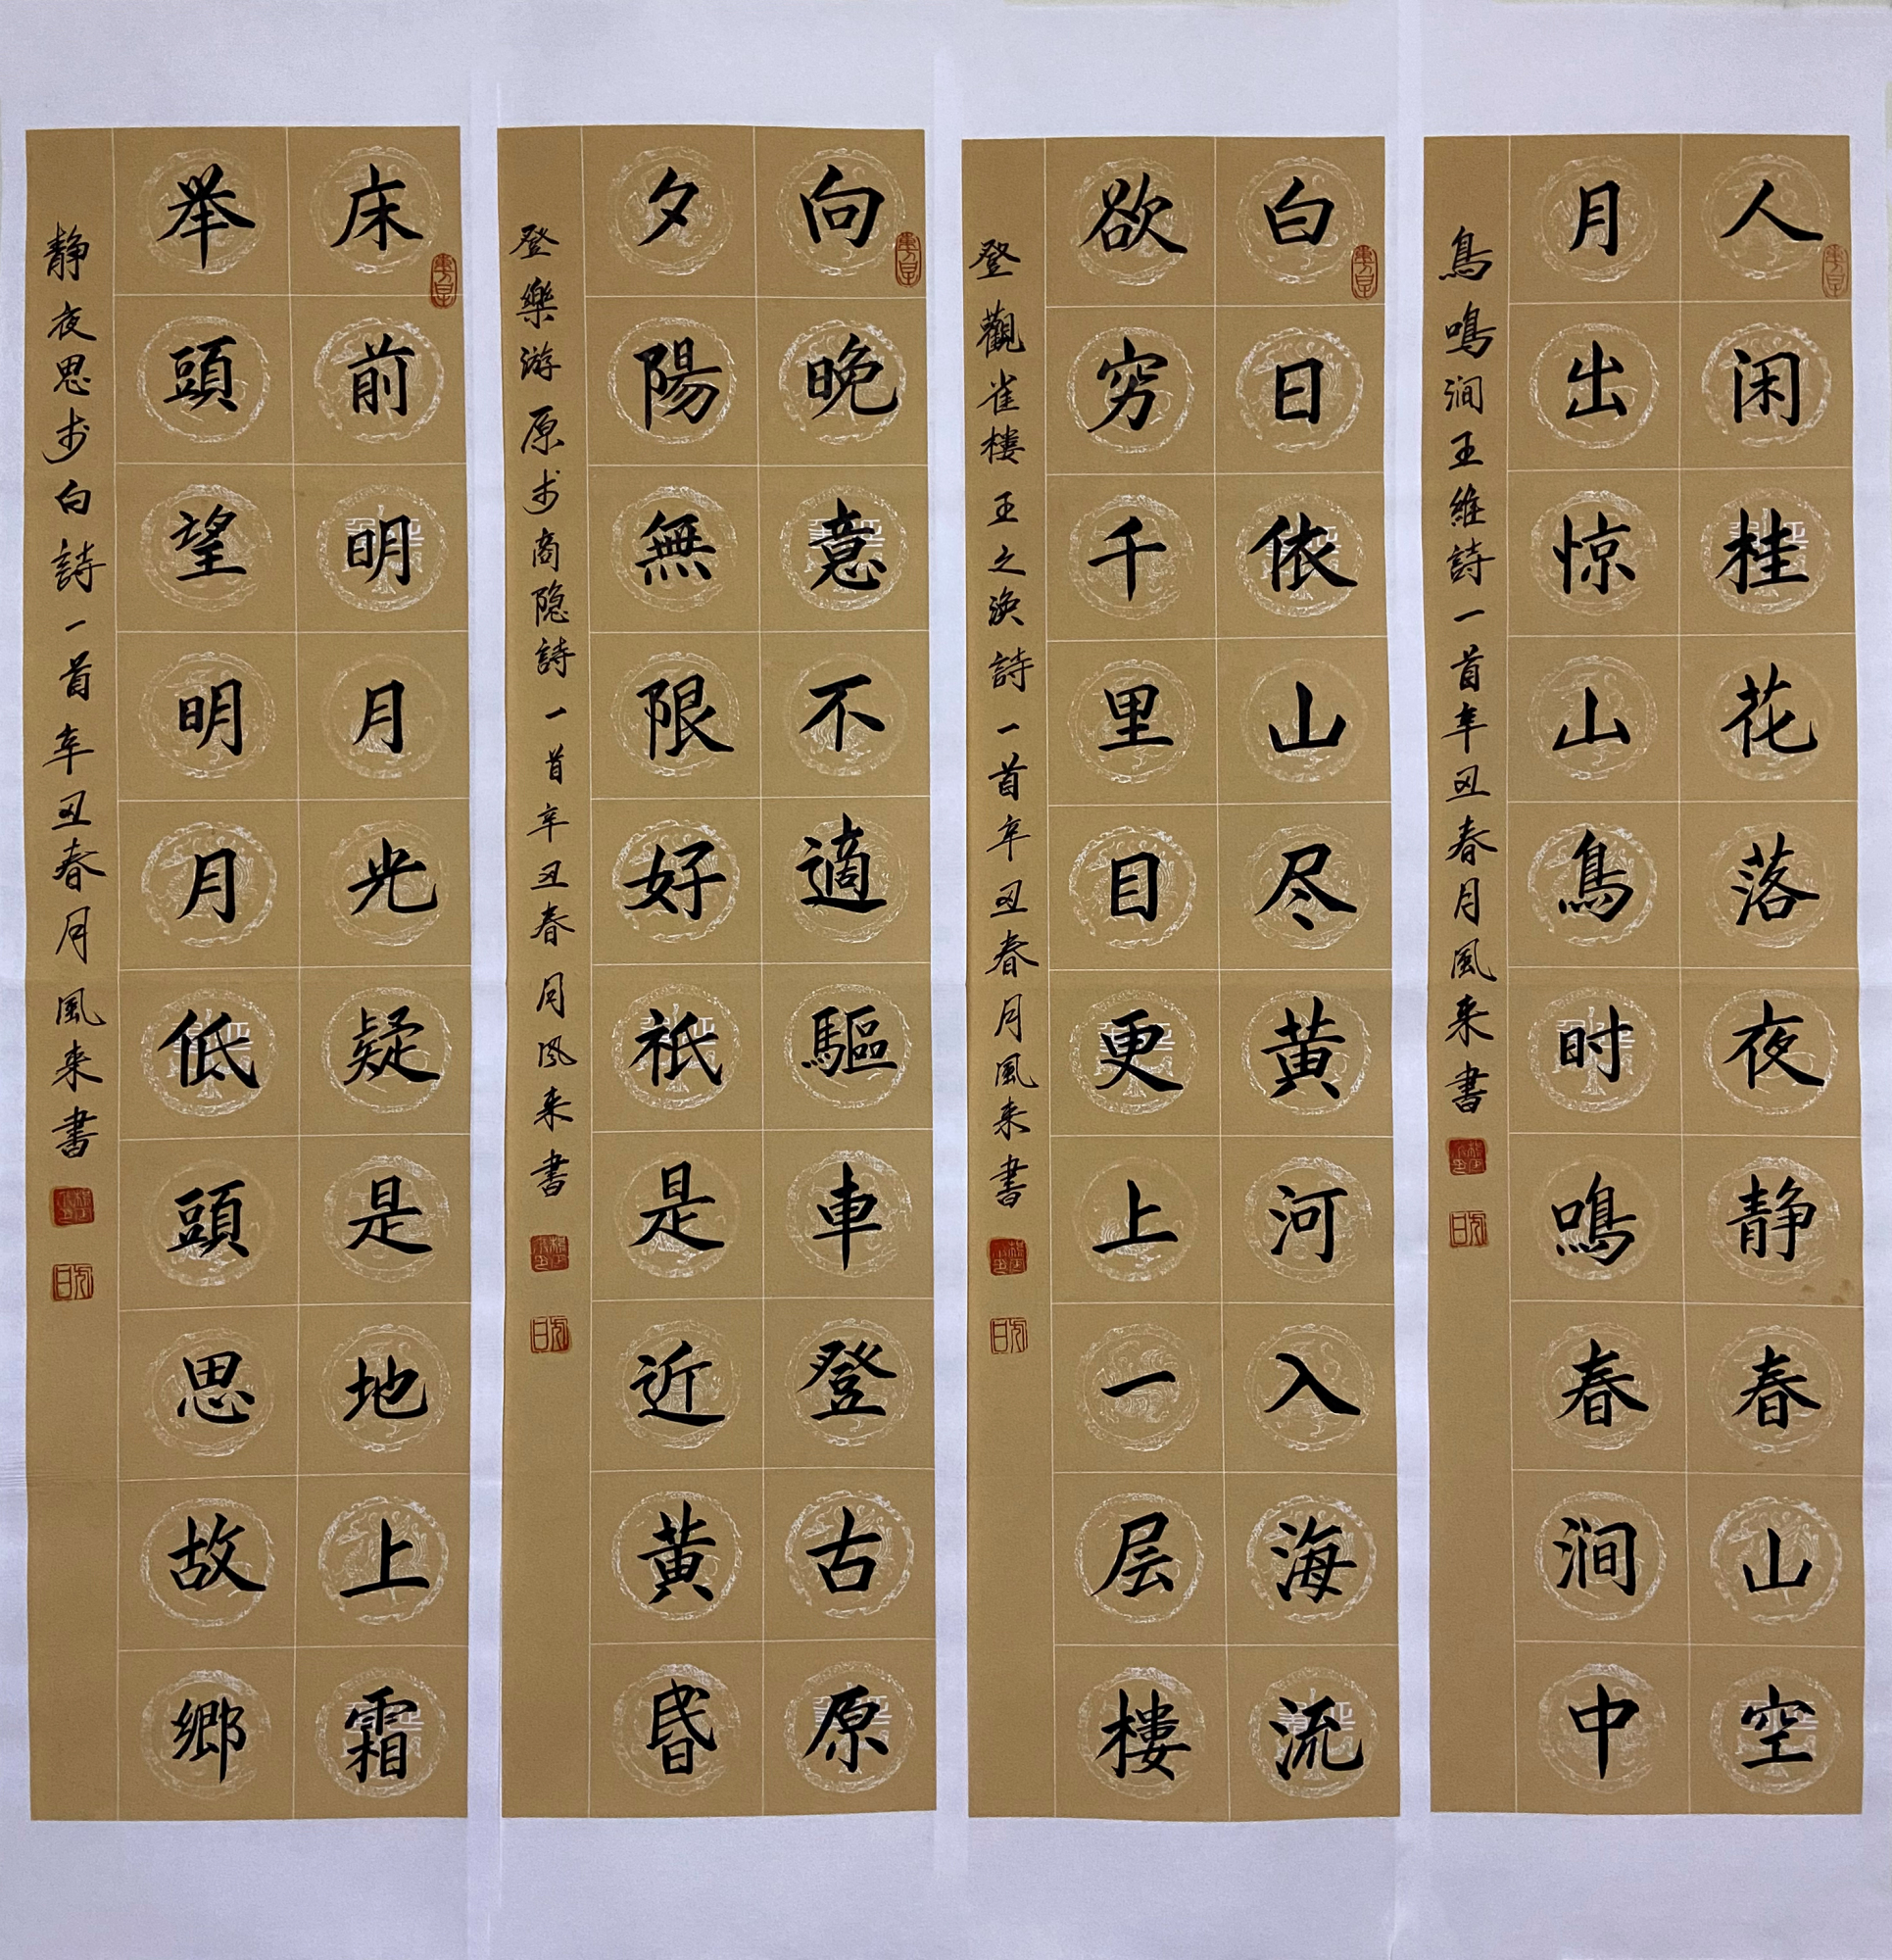 人闲桂花落夜静春山空
月出惊山鳥时鳴春涧中
鳥鳴涧王維詩一首辛丑春月風来書
白日依山尽黄河入海流
欲穷千里目更上一层樓
登觀雀樓王之渙詩一首辛丑春月風来書
向晚意不適驅車登古原
夕陽無限好祇是近黄昬
登樂游原李商隐詩一首辛丑春月风来書
床前明月光疑是地上霜
举頭望明月低頭思故鄉
静夜思李白詩一首辛丑春月風来書